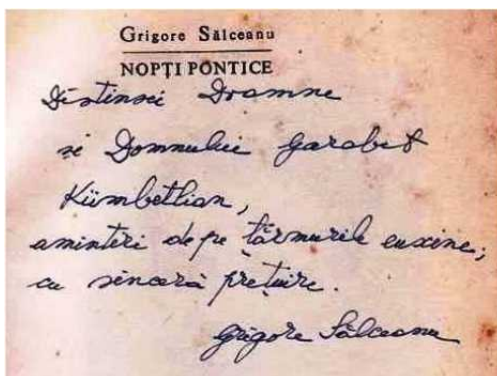 Grigore Sălceanu
NOPȚI PONTICE
Distinsei Doamne
și Domnului Garabet
Kümbetlian,
amintiri de pe țărmurile euxine,
cu sinceră prețuire.
Grigore Sălceanu